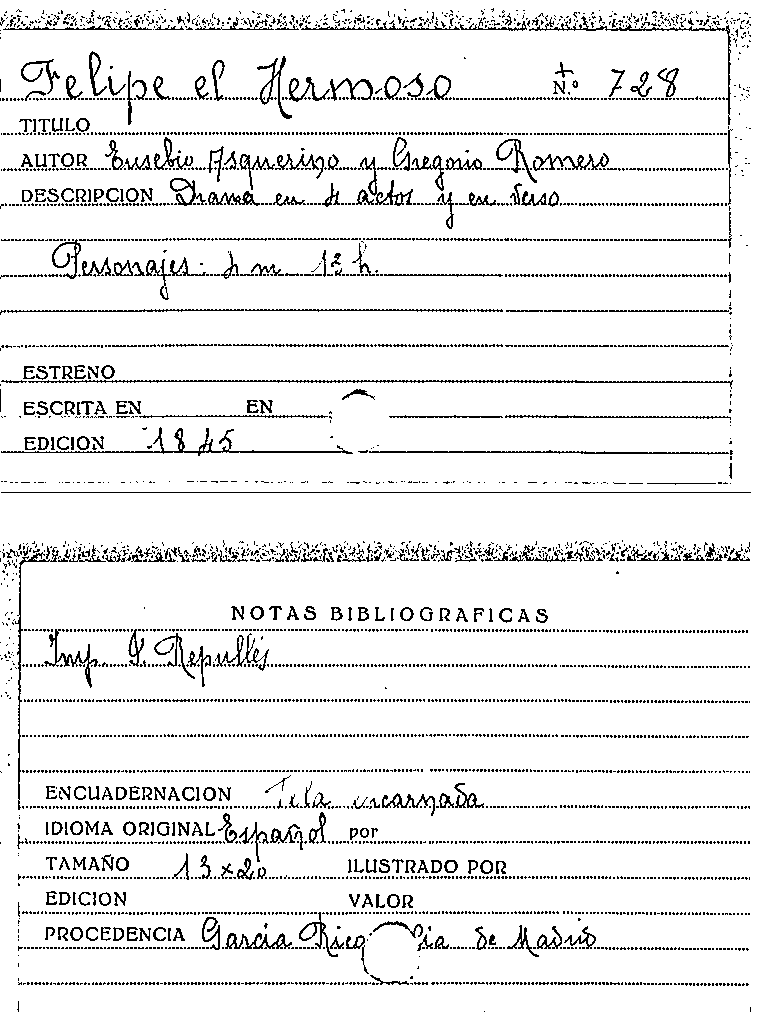 Felipe el Hermoso N.º 728
TITULO
AUTOR Eusebio Asquerino y Gregorio Romero
DESCRIPCION Drama en 4 actos y en verso
Personajes: 4 m. 13 h.
ESTRENO
ESCRITA EN EN
EDICION 1845
NOTAS BIBLIOGRAFICAS
Imp. Repullés
ENCUADERNACION Tela encarnada
IDIOMA ORIGINAL Español por
TAMAÑO 13 x 20 ILUSTRADO POR
EDICION VALOR
PROCEDENCIA Garcia Rico de Madrid